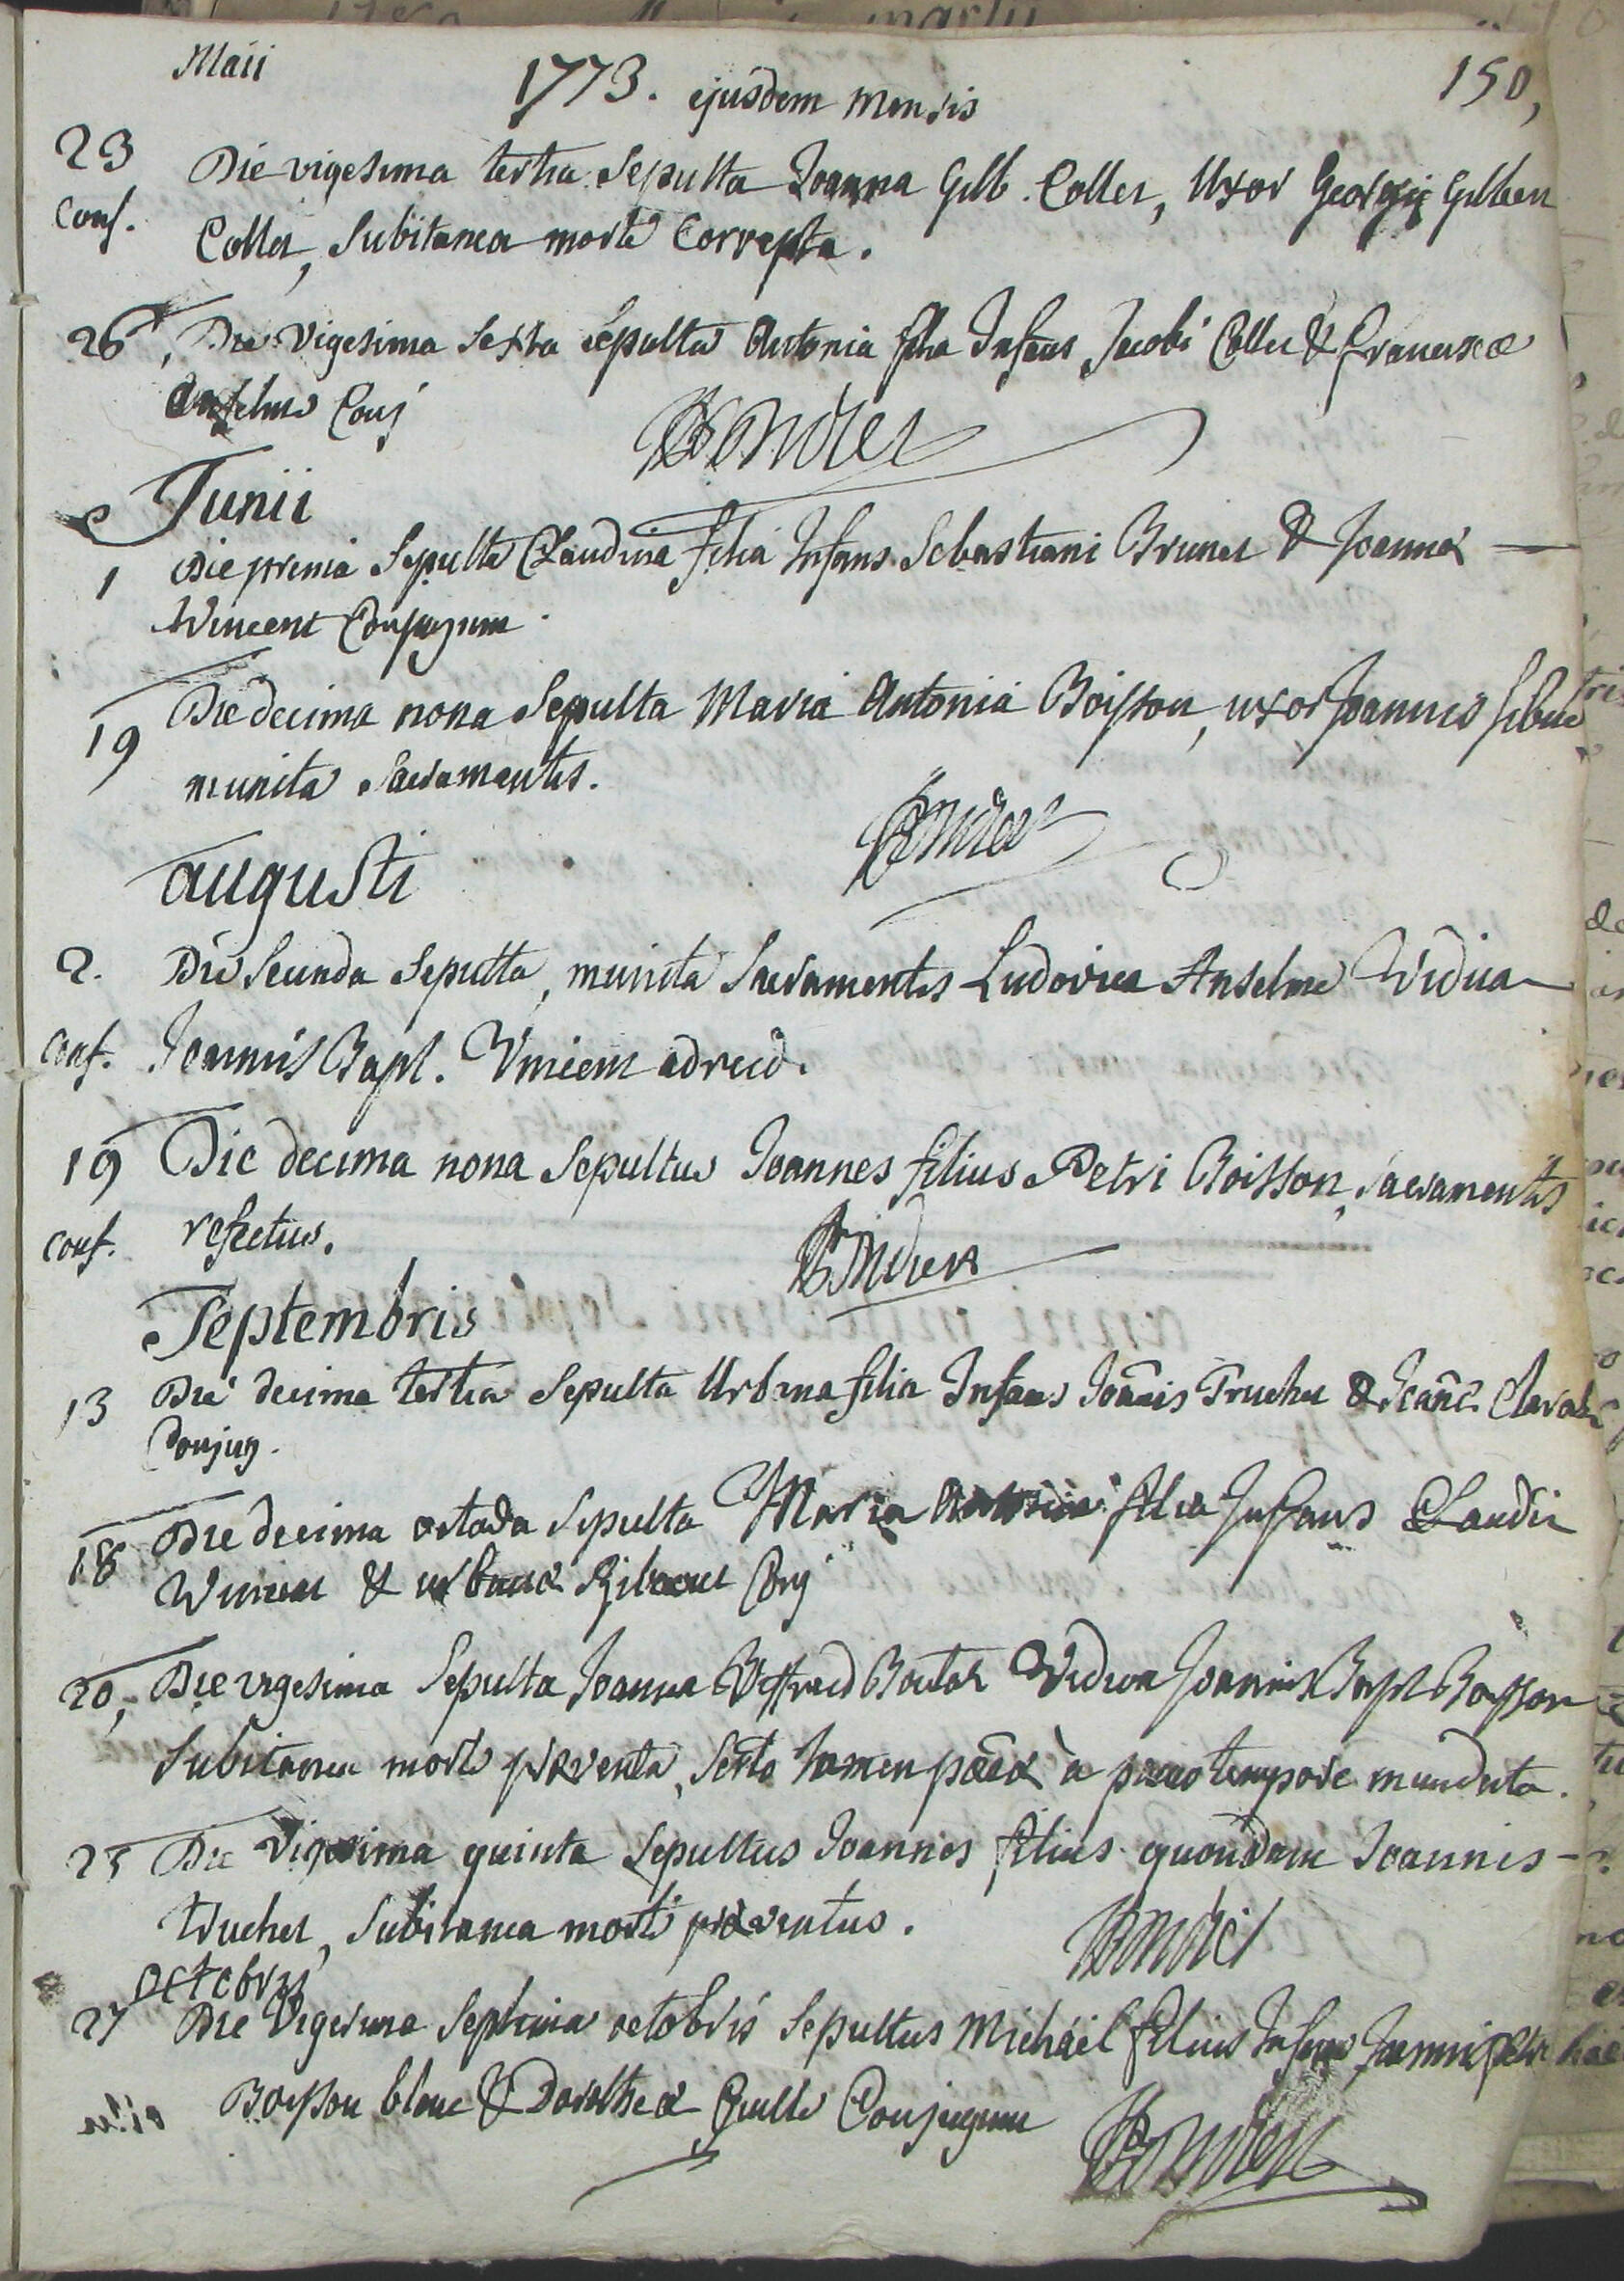 Maii
1773. ejusdem mensis
150,
23 Die vigesima tertia Sepulta Joanna Gilb. Coller, Uxor Georgii Gilben
conf. Coller, Subitanea morte Correpta.
26, Die Vigesima Sexta Sepulta Antonia filia Infans Jacobi Coller & franciscæ
Anselme Conj
Junii
1 Die prima Sepulta Claudina filia Infans Sebastiani Brunet & Joannæ
Vincent Conjugum.
19 Die decima nona Sepulta Maria Antonia Boisson, uxor Joannis
munita Sacramentis.
augusti
2. Die Secunda Sepulta, munita Sacramentis Ludovica Anselme Vidua
conf. Joannis Bapt. Vincent
19 Die decima nona Sepultus Joannes filius Petri Boisson, Sacramentis
conf. refectus.
Septembris
13 Die decima tertia Sepulta Urbana filia Infans Joañis Truchet & Joañæ
Conjug.
18 Die decima octava Sepulta Maria filia Infans Claudii
Vincent & urbanæ Conj
20, Die vigesima Sepulta Joanna Vidua Joannis Bapt Boisson
Subitanea morte præventa, tamen à tempore mundata.
25 Die Vigesima quinta Sepultus Joannes filius quondam Joannis
truchet, Subitanea morte præventus.
octobris
27 Die Vigesima Septima octobris Sepultus Michaël filius Infans Joannis petri
Boisson blanc & Dorotheæ Conjugum